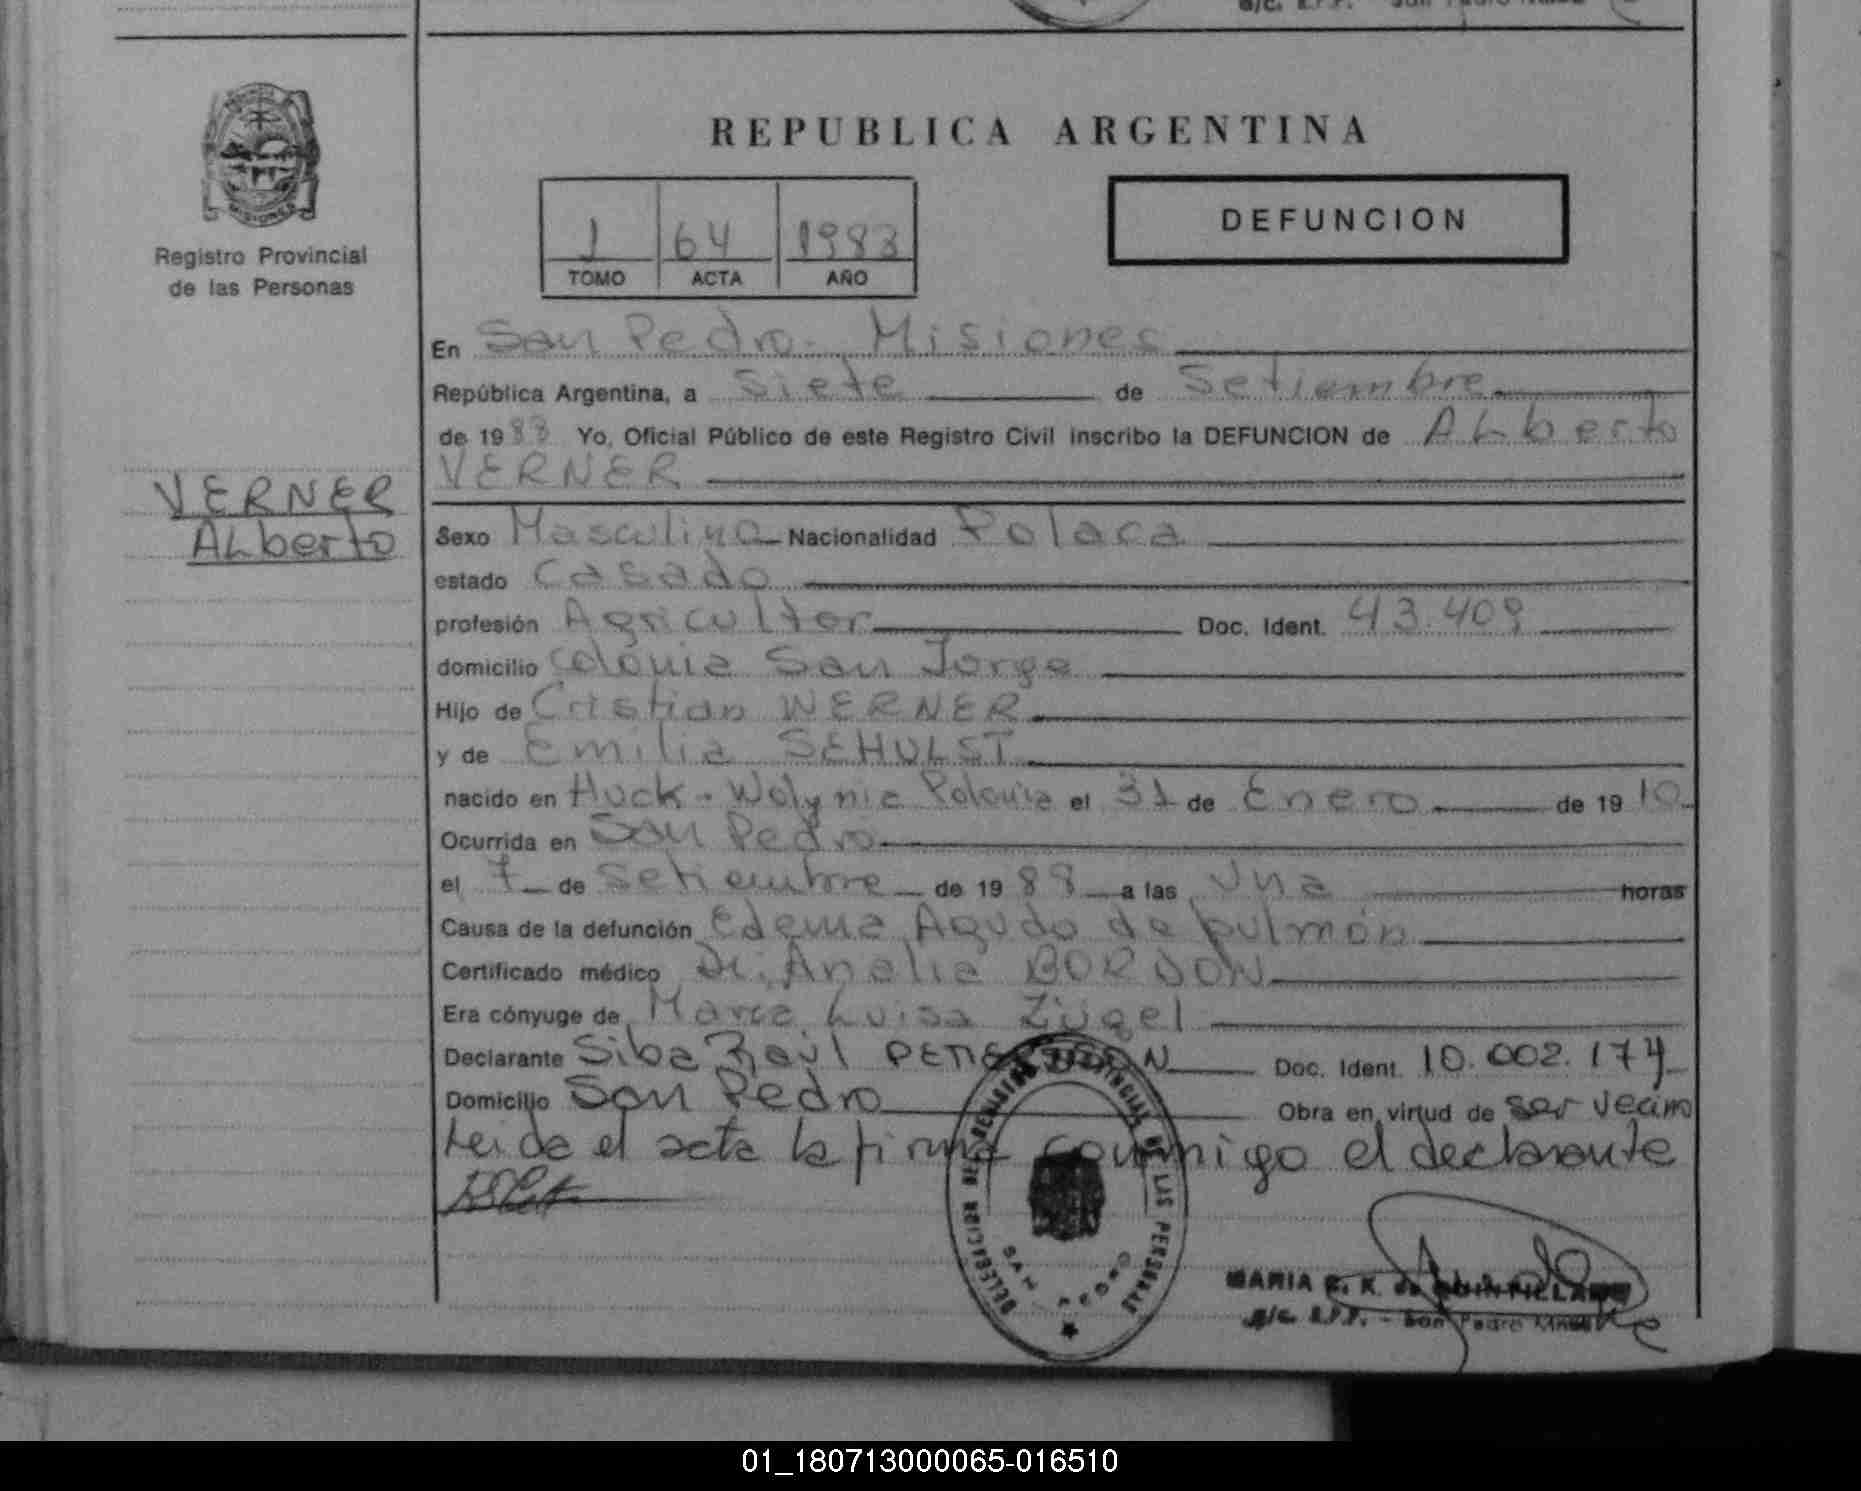 REPUBLICA ARGENTINA
MISIONES
Registro Provincial
de las Personas
1 64 1983
TOMO ACTA AÑO
DEFUNCION
En San Pedro. Misiones
República Argentina, a Siete de Setiembre
de 1983 Yo, Oficial Público de este Registro Civil inscribo la DEFUNCION de ALberto
VERNER
VERNER
ALberto
Sexo Masculino Nacionalidad Polaca
estado Casado
profesión Agricultor Doc. Ident. 43.409
domicilio Colonia San Jorge
Hijo de Cristian WERNER
y de Emilia SEHULST
nacido en Huck - Wolynia Polonia el 31 de Enero de 1910
Ocurrida en San Pedro
el 7 de Setiembre de 1983 a las Una horas
Causa de la defunción Edema Agudo de pulmón
Certificado médico Dr. Analia BORDON
Era cónyuge de Maria Luisa Zügel
Declarante Siba Raúl Doc. Ident. 10.002.174
Domicilio San Pedro Obra en virtud de ser vecino
Leida el acta la firma conmigo el declarante
DELEGACION DEL REGISTRO PROVINCIAL DE LAS PERSONAS
SAN PEDRO
MARIA de QUINTILLAN
a/c. R.P.P. - San Pedro
01_180713000065-016510